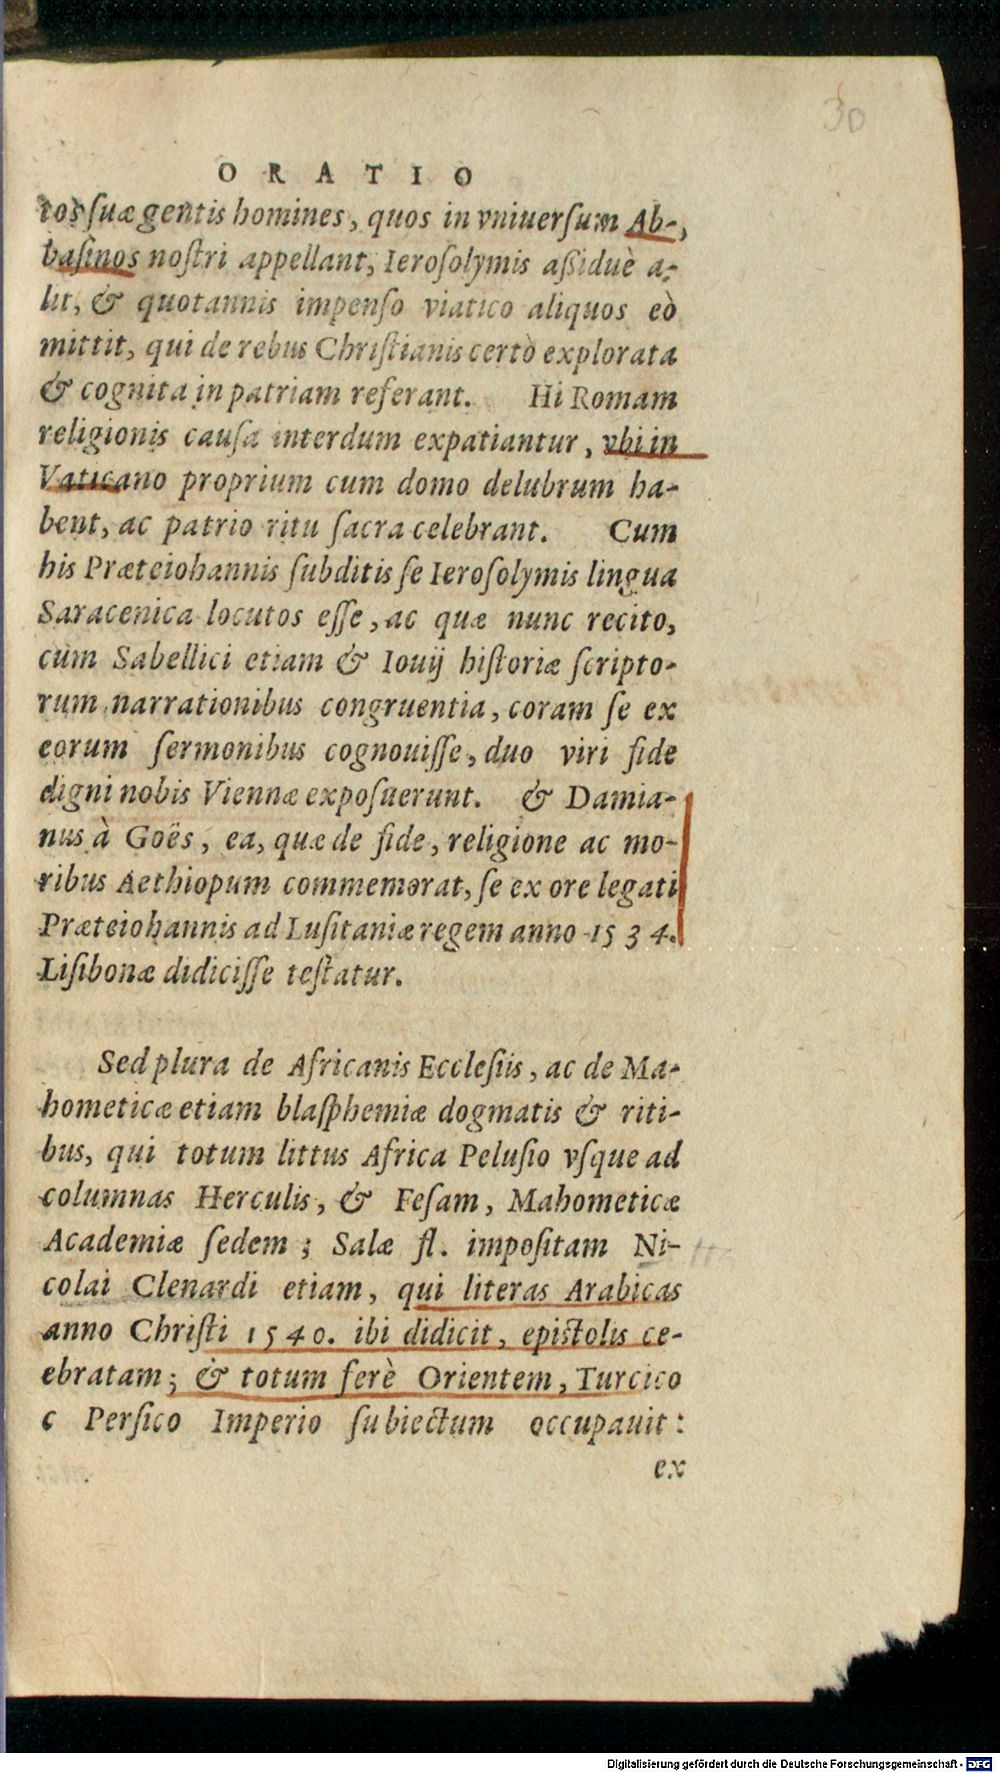 30
ORATIO
tos suæ gentis homines, quos in vniuersum Ab-,
basinos nostri appellant, Ierosolymis assiduè a-
lit, & quotannis impenso viatico aliquos eò
mittit, qui de rebus Christianis certò explorata
& cognita in patriam referant. Hi Romam
religionis causa interdum expatiantur, vbi in
Vaticano proprium cum domo delubrum ha-
bent, ac patrio ritu sacra celebrant. Cum
his Præteiohannis subditis se Ierosolymis lingua
Saracenica locutos esse, ac quæ nunc recito,
cùm Sabellici etiam & Iouij historiæ scripto-
rum narrationibus congruentia, coram se ex
eorum sermonibus cognouisse, duo viri fide
digni nobis Viennæ exposuerunt. & Damia-
nus à Goës, ea, quæ de fide, religione ac mo-
ribus Aethiopum commemorat, se ex ore legati
Præteiohannis ad Lusitaniæ regem anno 1534.
Lisibonæ didicisse testatur.
Sed plura de Africanis Ecclesiis, ac de Ma-
hometicæ etiam blasphemiæ dogmatis & riti-
bus, qui totum littus Africa Pelusio vsque ad
columnas Herculis, & Fesam, Mahometicæ
Academiæ sedem; Salæ fl. impositam Ni-
colai Clenardi etiam, qui literas Arabicas
anno Christi 1540. ibi didicit, epistolis ce-
ebratam; & totum ferè Orientem, Turcico
c Persico Imperio subiectum occupauit:
ex
Digitalisierung gefördert durch die Deutsche Forschungsgemeinschaft - DFG